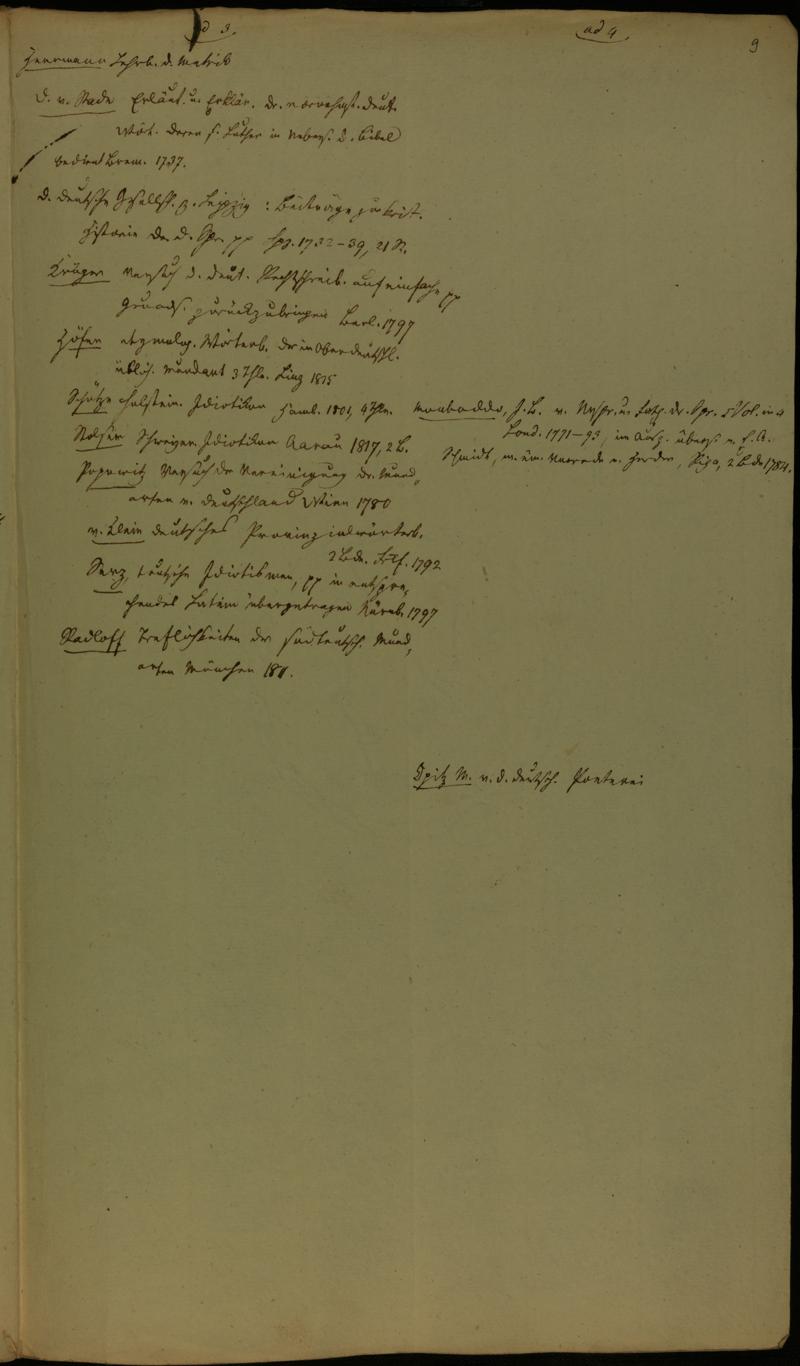 ad 3.
Herrmann Lehrb. d. Metrik
D. v. Stade Erläut. u. Erklär. dr. vornehmst. deut.
Wört. deren s. Luther in Uebers. d. Bibel
bedient Brem. 1737.
d. deutsche Gesellsch. z. Leipzig : Beiträge zur krit.
Historie der d. Spr. pp Lpz. 1732-39, 21 St.
Krüger Versuch d. deut. Rechtschreib. auf einfache pp
Grunds. zurückzubringen Berl. 1797
Höfer etymolog. Wörterb. der in Oberdeutschl.
üblich. Mundart 3 Thle. Linz 1815
Schütze Holstein. Idiotikon Hamb. 1801, 4 Thle.
Stalder Schweizer. Idiotikon Aarau 1817, 2 B.
Popowitz Versuch der Vereinigung dr. Mund,
arten v. Deutschland Wien 1780
v. Klein deutsches Provinzialwörterb.
2 Bde. Frkf. 1792
Serz, teutsche Idiotismen, pp in entspre,
chendes Latein übergetragen Nürnb. 1797
Radloff Treflichkeiten der südteutsch. Mund,
arten München 1811.
ad 4.
9
Monboddo, J. B. v. Urspr. u. Fortg. dr. Spr. 5 Vol. in 4
Lond. 1771-93, im Ausz. übers. v. E. A.
Schmidt, m. ein. Vorrede v. Herder, Riga, 2 Bde 1784.
Opitz M. v. d. deutsch. Poeterei